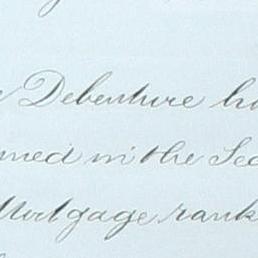 Debenture
in the
Mortgage rank